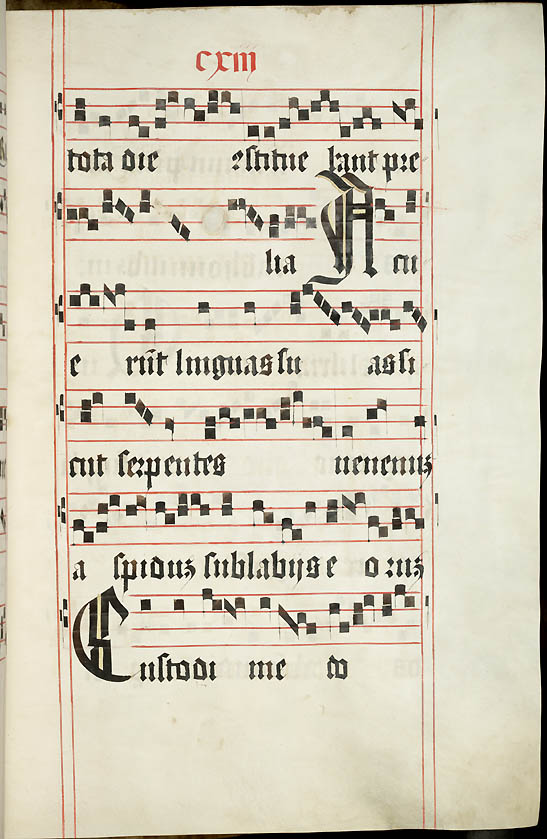 cxiii
tota die estitue bant pre
lia Acu
e rūt linguas su as si
cut serpentes uenenuʒ
a spiduʒ sub labijs e o ruʒ
Custodi me do